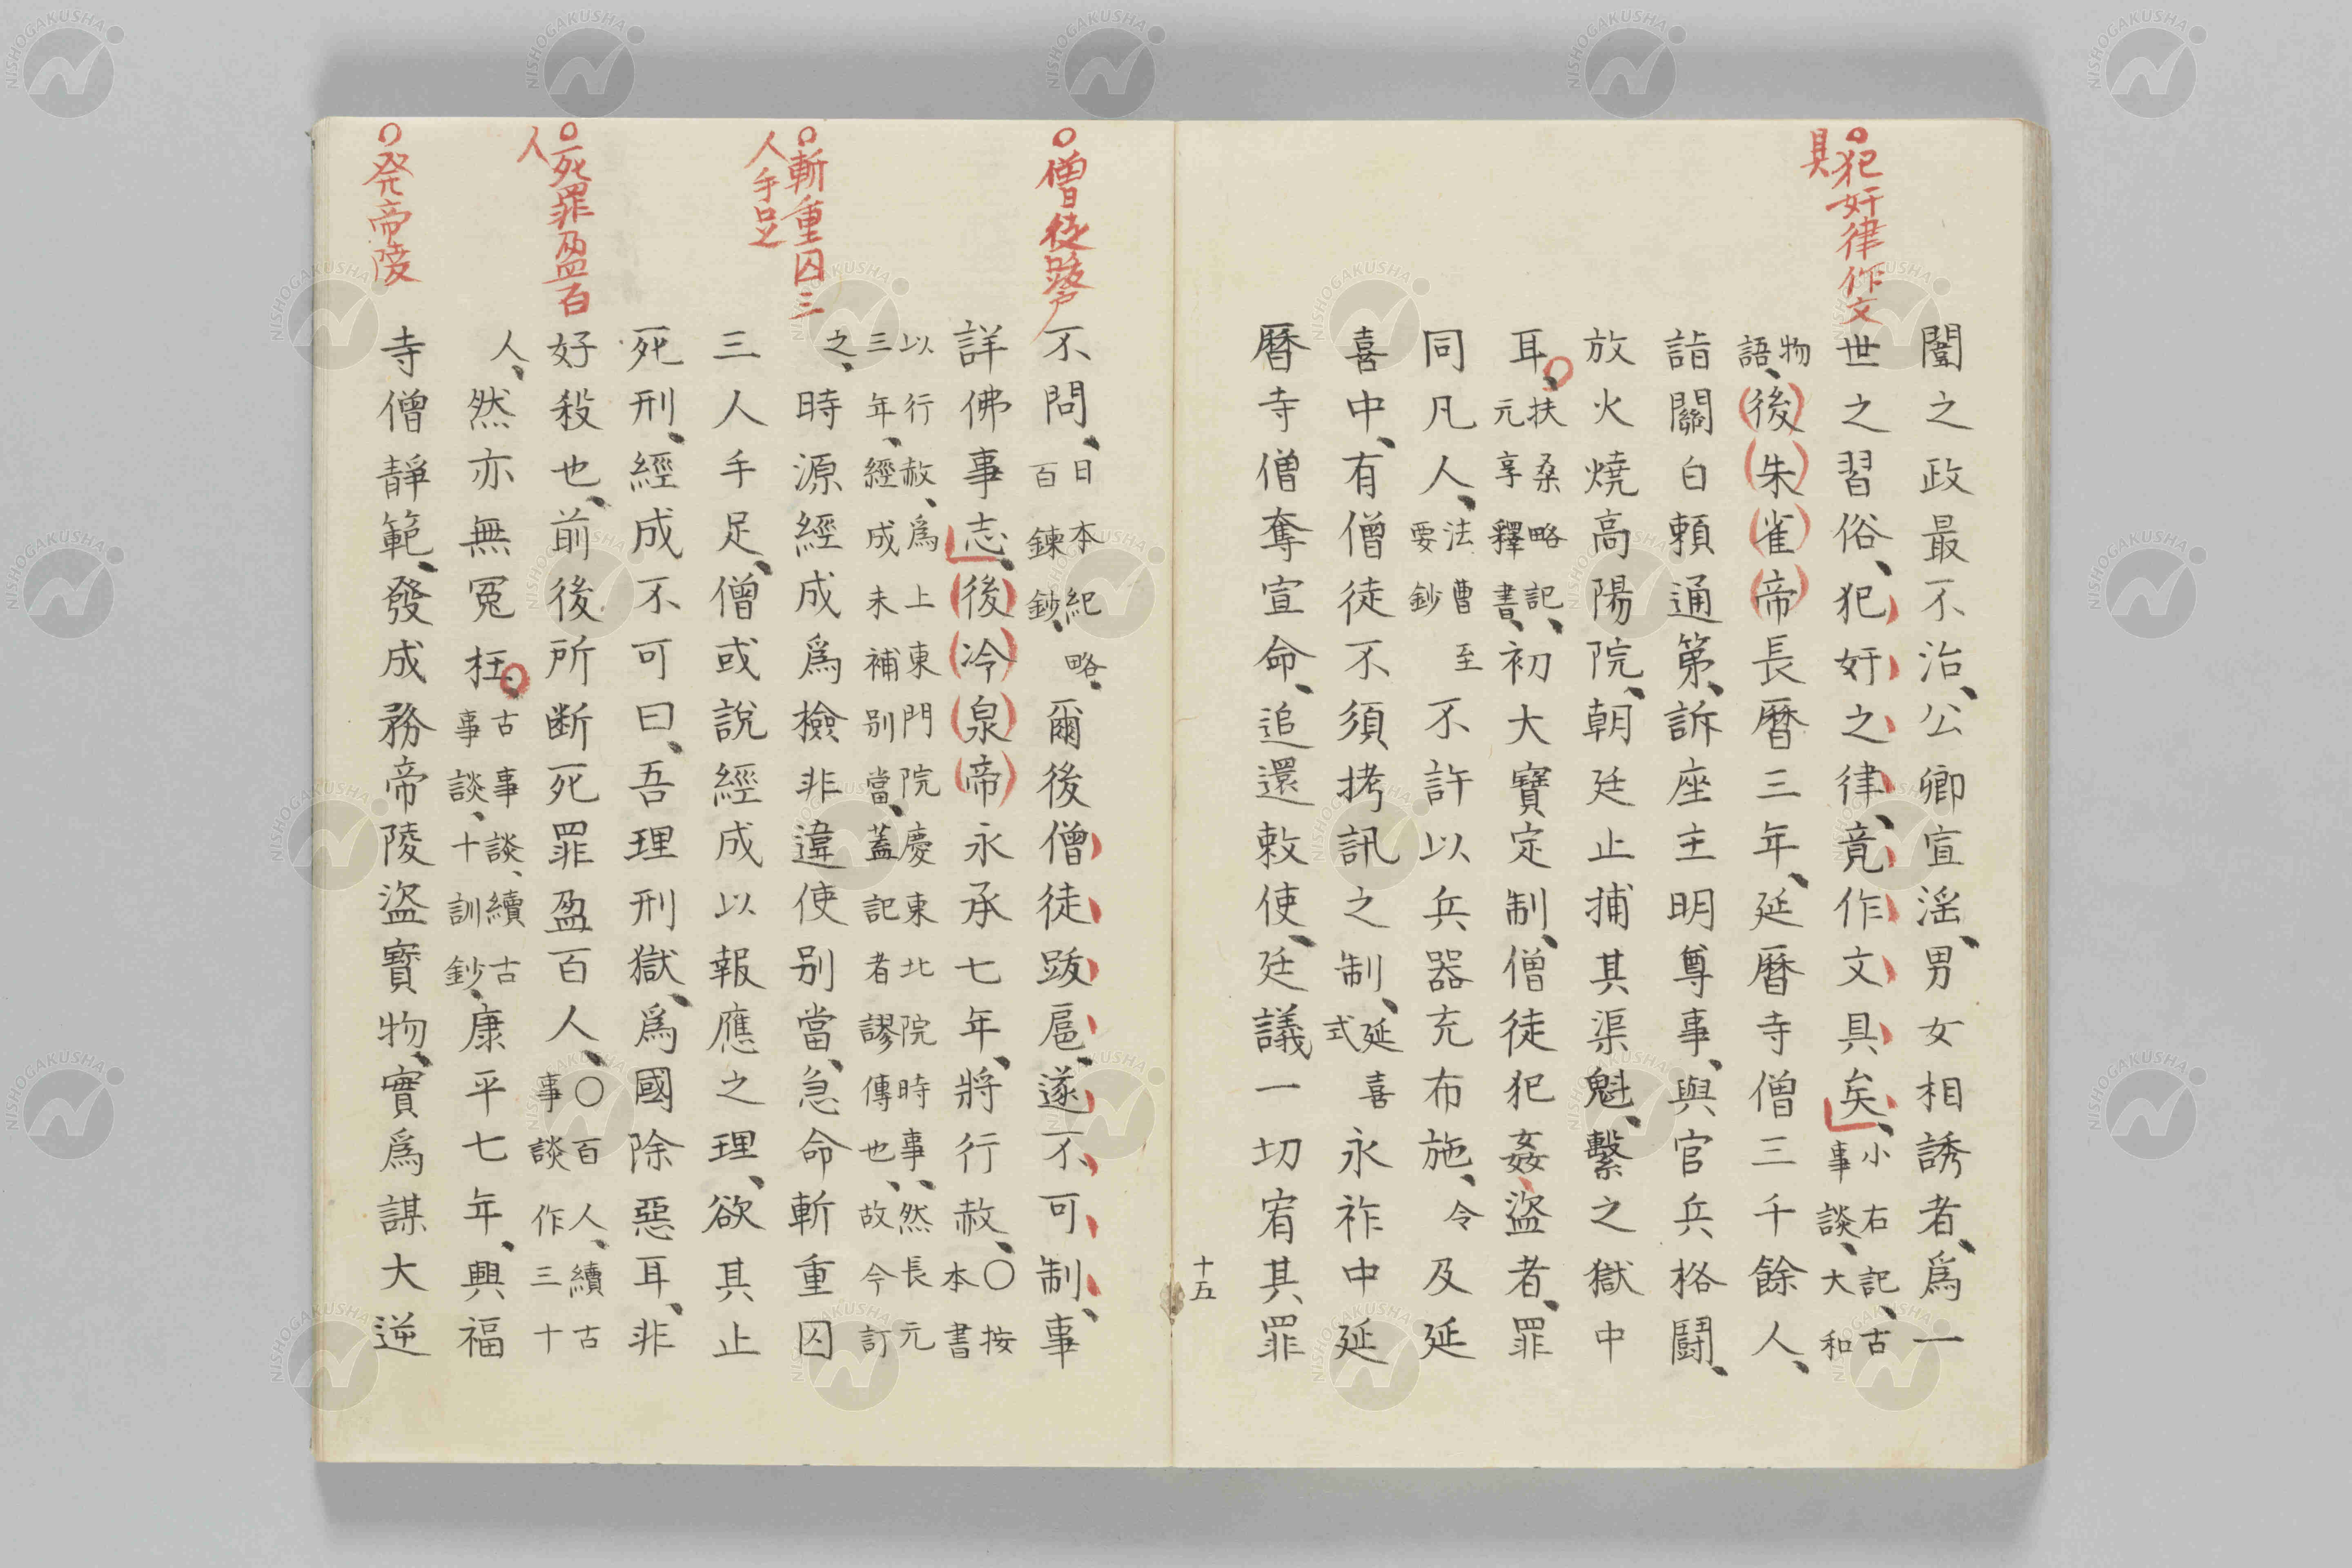 ○犯奸律作文
具
闈之政最不治、公卿宣淫、男女相誘者、爲一
世之習俗、犯奸之律、竟作文具矣、小右記、古
事談、大和
物
語、後朱雀帝長曆三年、延曆寺僧三千餘人、
詣關白頼通第、訴座主明尊事、與官兵格鬪、
放火燒高陽院、朝廷止捕其渠魁、繫之獄中
耳、扶桑略記、
元享釋書、初大寶定制、僧徒犯姦盜者、罪
同凡人、法曹至
要鈔不許以兵器充布施、令及延
喜中、有僧徒不須拷訊之制、延喜
式永祚中延
曆寺僧奪宣命、追還敕使、廷議一切宥其罪
十五
○僧徒跋扈
不問、日本紀略、
百鍊鈔、爾後僧徒跋扈、遂不可制、事
詳佛事志、後冷泉帝永承七年、將行赦、○按
本書
以行赦、爲上東門院慶東北院時事、然長元
三年、經成未補別當、蓋記者謬傳也、故今訂
○斬重囚三
人手足
之、時源經成爲檢非違使別當、急命斬重囚
三人手足、僧或說經成以報應之理、欲其止
死刑、經成不可曰、吾理刑獄、爲國除惡耳、非
○死罪盈百
人
好殺也、前後所断死罪盈百人、○百人、續古
事談作三十
人、然亦無冤枉、古事談、續古
事談、十訓鈔、康平七年、興福
○発帝陵
寺僧靜範、發成務帝陵盜寳物、實爲謀大逆
NISHOGAKUSHA